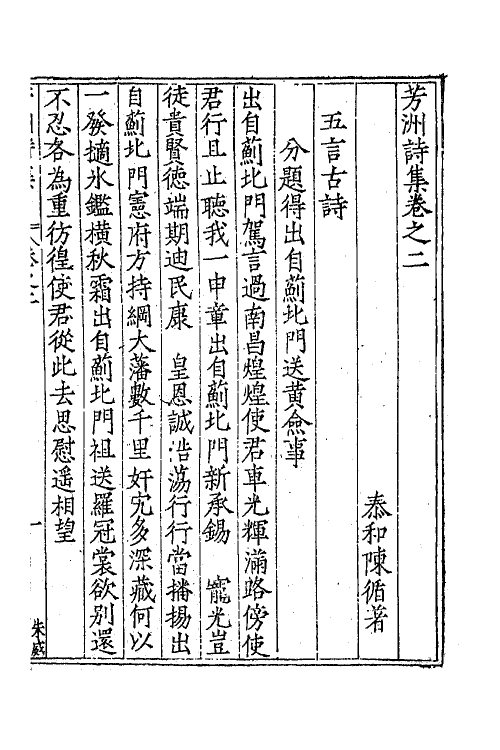 芳洲詩集卷之二
泰和陳循著
五言古詩
分題得出自薊北門送黄僉事
出自薊北門駕言過南昌煌煌使君車光輝滿路傍使
君行且止聽我一申章出自薊北門新承錫 寵光豈
徒貴賢德端期迪民康 皇恩誠浩蕩行行當播揚出
自薊北門憲府方持綱大藩數千里奸宄多深藏何以
一發擿氷鑑橫秋霜出自薊北門祖送羅冠裳欲別還
不忍各為重彷徨使君從此去思慰遥相望
一
朱威